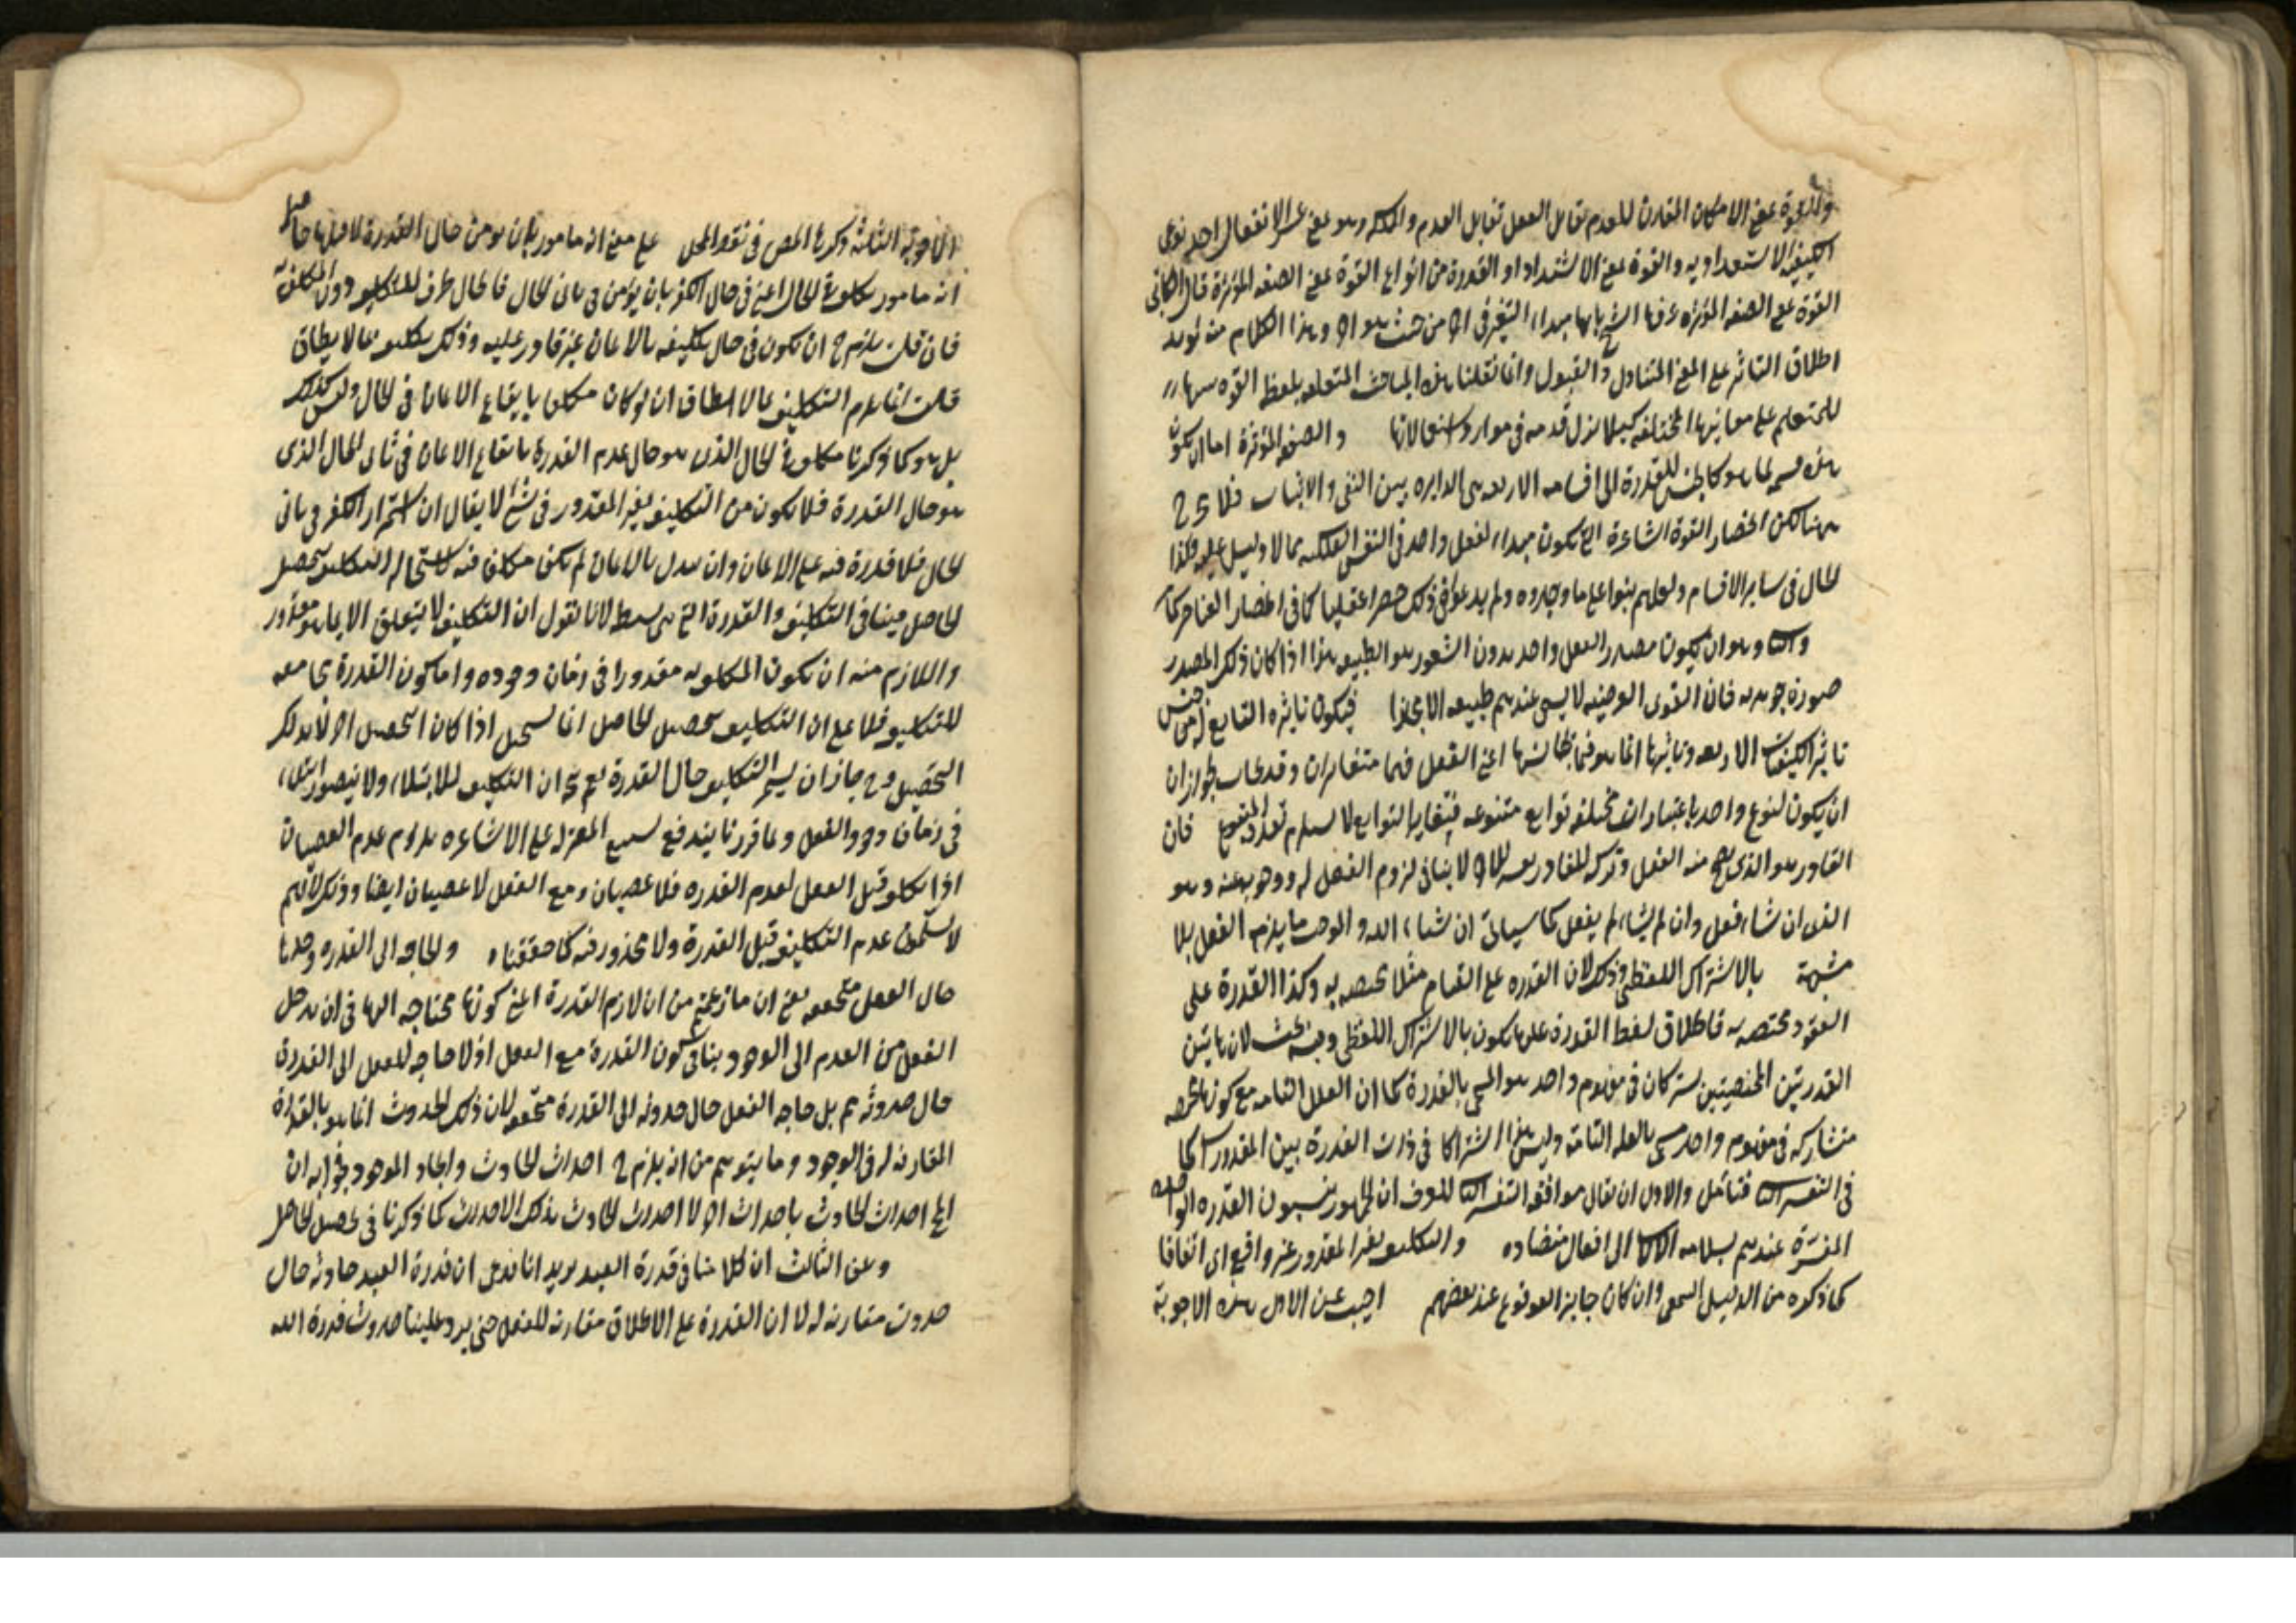 والقوة بمعنى الامكان المقارن للعدم تقابل الفعل تقابل العدم والملكة وهو بمعنى عسر الانفعال احد نوعى
الكيفية الاستعدادية والقوة بمعنى الاشتداد او القدرة من انواع القوة بمعنى الصفة المؤثرة قال الكاتبى
القوة بمعنى الصفة المؤثرة عرفها الشيخ بانها مبداء التغير فى اخر من حيث هو اخر وهذا الكلام منه يؤيد
اطلاق التاثير على المعنى المتناول والقبول وانما نقلنا هذه المباحث المتعلقة بلفظ القوة
للمتعلم على معانيها المختلفة كيلا يزل قدمه فى موارد استعمالاتها والصفة المؤثرة اما ان يكون
هذه قسمة لما هو كالجنس للقدرة الى اقسامه الاربعة هى الدايرة بين النفى والاثبات فلا
هنا لكن انحصار القوة الشاعرة التى يكون مبداء لفعل واحد فى النفس الفلكية مما لا دليل عليه وكذا
الحال فى ساير الاقسام ولعلهم بنوا على ما وجدوه ولم يدعوا فى ذلك حصرا عقليا كما فى انحصار العناصر
وهو ان يكون مصدر الفعل واحد بدون الشعور هو الطبيعة هذا اذا كان ذلك المصدر
صورة جوهرية فان القوى العرضية لا يسمى عندهم طبيعة الا مجازا فيكون تاثيره التابع له من جنس
تاثير الكيفيات الاربعة وتاثيرها انما هو فيما يجانسها اعنى الفعل فهما متغايران وقد يجاب بجواز ان
ان يكون لنوع واحد باعتبارات مختلفة توابع متنوعة فتغاير التوابع لا يستلزم تعدد المتبوع فان
القادر هو الذى يصح منه الفعل وتركه للقادر لا ينافى لزوم الفعل له ووجوبه عنه وهو
الذى ان شاء فعل وان لم يشاء لم يفعل كما سياتى ان شاء الله والموجب ما يلزم الفعل بلا
مشية بالاشتراك اللفظى وذلك لان القدرة على القيام مثلا مختصة به وكذا القدرة على
القعود مختصة به فاطلاق لفظ القدرة عليها يكون بالاشتراك اللفظى وفيه بحث لان هاتين
القدرتين المختصتين يشتركان فى مفهوم واحد هو المسمى بالقدرة كما ان العلل التامة مع كونها مختصة
متشاركة فى مفهوم واحد مسمى بالعلة التامة وليس هذا اشتراكا فى ذات القدرة بين المقدورات كما
فى التفسير فتامل والاولى ان يقال موافقة التفسير للعرف ان الجمهور ينسبون القدرة الواحدة
المفسرة عندهم بسلامة الالات الى افعال متضادة والتكليف بغير المقدور غير واقع اى اتفاقا
كما ذكره من الدليل السمعى وان كان جايز الوقوع عند بعضهم اجيب عن الاول هذه الاجوبة
الاجوبة الثلثة ذكرها المص فى نقد المحصل على معنى انه مامور بان يومن حال القدرة لا قبلها حاصله
انه مامور مكلف فى الحال اعنى فى حال الكفر بان يؤمن فى ثانى الحال فالحال ظرف للتكليف دون المكلف به
فان قلت يلزم ح ان يكون فى حال تكليفه بالايمان غير قادر عليه وذلك تكليف بما لا يطاق
قلت انما يلزم التكليف بما لا يطاق ان لو كان مكلفا بايقاع الايمان فى الحال وليس كذلك
بل هو كما ذكرنا مكلف فى الحال الذى هو حال عدم القدرة بايقاع الايمان فى ثانى الحال الذى
هو حال القدرة فلا يكون من التكليف بغير المقدور فى شئ لا يقال ان استمرار الكفر فى ثانى
الحال فلا قدرة فيه على الايمان وان بدل بالايمان لم يكن مكلفا فيه لاستحالة التكليف بتحصيل
الحاصل فينافى التكليف والقدرة التى هى شرطه لانا نقول ان التكليف لا يتعلق الا بما هو مقدور
واللازم منه ان يكون المكلف به مقدورا فى زمان وجوده واما كون القدرة مجامعة
للتكليف فلا على ان التكليف بتحصيل الحاصل انما يستحيل اذا كان التحصيل اخر لا بذلك
التحصيل وح جاز ان يستمر التكليف حال القدرة نعم يتجه ان التكليف للابتلاء ولا يتصور ابتلاء
فى زمان وجود الفعل وبما قررنا يندفع تشنيع المعتزلة على الاشاعرة بلزوم عدم العصيان
اذ لا تكليف قبل الفعل لعدم القدرة فلا عصيان ومع الفعل لا عصيان ايضا وذلك لانهم
لا يسلمون عدم التكليف قبل القدرة ولا محذور فيه كما حققناه والحاجة الى القدرة وحدها
حال الفعل متحققة يعنى ان ما زعمتم من ان لازم القدرة اعنى كونها محتاجة اليها فى ان يدخل
الفعل من العدم الى الوجود ينافى كون القدرة مع الفعل اذ لا حاجة للفعل الى القدرة
حال حدوثه مم بل حاجة الفعل حال حدوثه الى القدرة متحققة لان ذلك الحدوث انما هو بالقدرة
المقارنة له فى الوجود وما يتوهم من انه يلزم ح احداث الحادث وايجاد الموجود فجوابه ان
المح احداث الحادث باحداث اخر لا احداث الحادث بذلك الاحداث كما ذكرنا فى تحصيل الحاصل
وعن الثالث ان كلامنا فى قدرة العبد يريد انا ندعى ان قدرة العبد حادثة حال
حدوث مقارنة له لا ان القدرة على الاطلاق مقارنة للفعل حتى يرد علينا حدوث قدرة الله